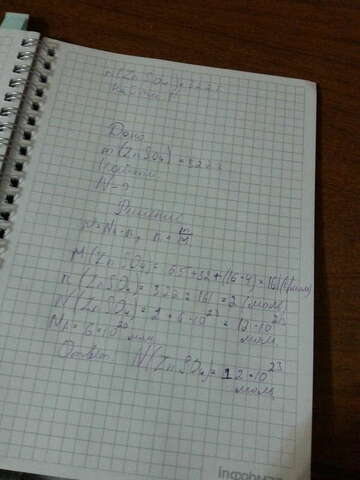 m(ZnSO₄)=322 г
Дано
m(ZnSO₄) = 322 г
N = ?
Решение
N=Nₐ·n, n = m/M
M(ZnSO₄) = 65+32+(16·4)=161 (г/моль)
n(ZnSO₄) = 322 : 161 = 2 (моль)
N(ZnSO₄) = 2 · 6·10²³ = 12·10²³
мол
Nₐ = 6·10²³
Ответ N(ZnSO₄)=12·10²³
мол